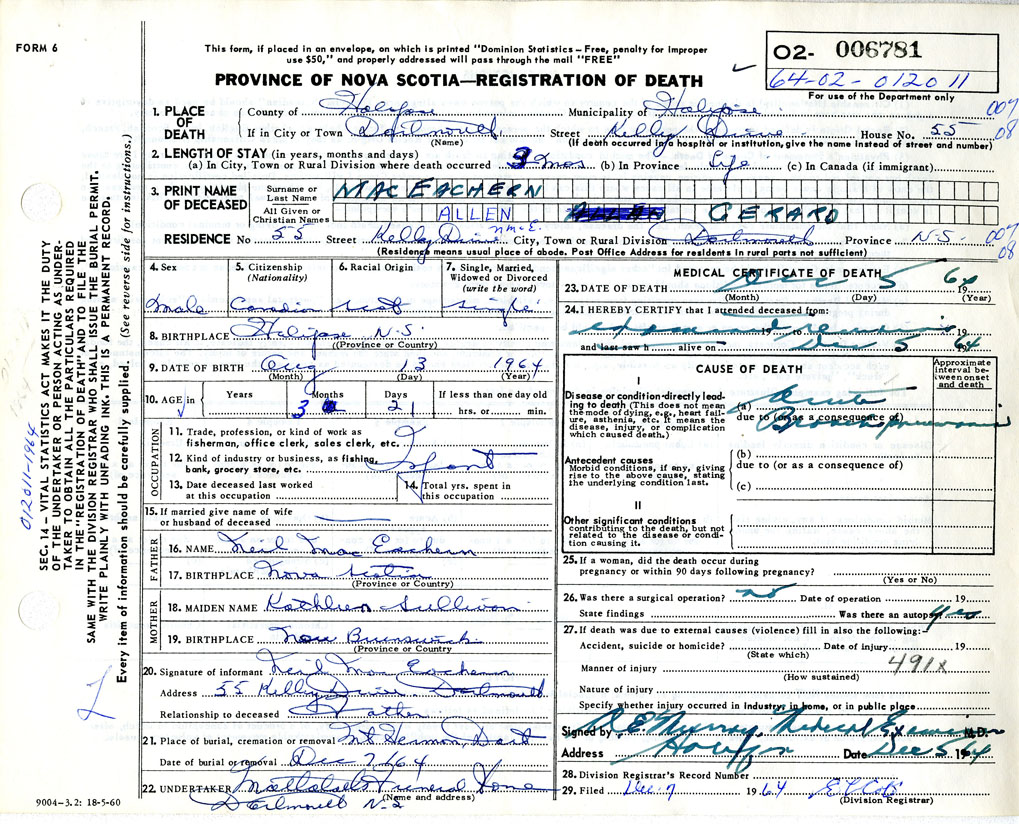 FORM 6
This form, if placed in an envelope, on which is printed "Dominion Statistics – Free, penalty for improper
use $50," and properly addressed will pass through the mail "FREE"
PROVINCE OF NOVA SCOTIA—REGISTRATION OF DEATH
O2- 006781
64-02-012011
For use of the Department only
1. PLACE OF DEATH
County of Halifax Municipality of Halifax 007
If in City or Town Dartmouth Street Kelly Drive House No. 55 08
(Name) (If death occurred in a hospital or institution, give the name instead of street and number)
2. LENGTH OF STAY (in years, months and days)
(a) In City, Town or Rural Division where death occurred 3 mos (b) In Province Life (c) In Canada (if immigrant)
3. PRINT NAME OF DECEASED
Surname or Last Name MAC EACHERN
All Given or Christian Names ALLEN GERARD
RESIDENCE No 55 Street Kelly Drive City, Town or Rural Division Dartmouth Province N-S- 007
08
(Residence means usual place of abode. Post Office Address for residents in rural parts not sufficient)
4. Sex
Male
5. Citizenship
(Nationality)
Canadian
6. Racial Origin
Scot
7. Single, Married,
Widowed or Divorced
(write the word)
Single
8. BIRTHPLACE Halifax N.S.
(Province or Country)
9. DATE OF BIRTH Aug 13 1964
(Month) (Day) (Year)
10. AGE in Years Months Days If less than one day old
3 21 hrs. or min.
OCCUPATION
11. Trade, profession, or kind of work as
fisherman, office clerk, sales clerk, etc.
12. Kind of industry or business, as fishing,
bank, grocery store, etc.
13. Date deceased last worked
at this occupation
14. Total yrs. spent in
this occupation
15. If married give name of wife
or husband of deceased
FATHER
16. NAME Neil Mac Eachern
17. BIRTHPLACE Nova Scotia
(Province or Country)
MOTHER
18. MAIDEN NAME Kathleen Sullivan
19. BIRTHPLACE New Brunswick
(Province or Country)
20. Signature of informant Neil Mac Eachern
Address 55 Kelly Drive Dartmouth
Relationship to deceased Father
21. Place of burial, cremation or removal Mt Hermon, Dart
Date of burial or removal Dec 7, 64
22. UNDERTAKER Funeral Home
(Name and address)
Dartmouth N.S
MEDICAL CERTIFICATE OF DEATH
23. DATE OF DEATH Dec 5 1964
(Month) (Day) (Year)
24. I HEREBY CERTIFY that I attended deceased from:
examined remains 19
and last saw h alive on Dec 5 1964
CAUSE OF DEATH
Approximate
interval between onset
and death
I
Disease or condition directly leading to death (This does not mean
the mode of dying, e.g., heart failure, asthenia, etc. It means the
disease, injury, or complication
which caused death.)
(a) Acute
due to (or as a consequence of)
Bronchopneumonia
Antecedent causes
Morbid conditions, if any, giving
rise to the above cause, stating
the underlying condition last.
(b)
due to (or as a consequence of)
(c)
II
Other significant conditions
contributing to the death, but not
related to the disease or condition causing it.
25. If a woman, did the death occur during
pregnancy or within 90 days following pregnancy?
(Yes or No)
26. Was there a surgical operation? no Date of operation 19
State findings Was there an autopsy yes
27. If death was due to external causes (violence) fill in also the following:
Accident, suicide or homicide? Date of injury 19
(State which)
Manner of injury 491x
(How sustained)
Nature of injury
Specify whether injury occurred in Industry, in home, or in public place
Signed by E. Murray, Medical Examiner M.D.
Address Halifax Date Dec 5 1964
28. Division Registrar's Record Number
29. Filed Dec. 7 1964
(Division Registrar)
9004—3.2: 18-5-60
012011-1964
SEC. 14 – VITAL STATISTICS ACT MAKES IT THE DUTY
OF THE UNDERTAKER OR PERSON ACTING AS UNDERTAKER TO OBTAIN ALL THE PARTICULARS REQUIRED
IN THE "REGISTRATION OF DEATH" AND TO FILE THE
SAME WITH THE DIVISION REGISTRAR WHO SHALL ISSUE THE BURIAL PERMIT.
WRITE PLAINLY WITH UNFADING INK. THIS IS A PERMANENT RECORD.
Every item of information should be carefully supplied. (See reverse side for instructions.)